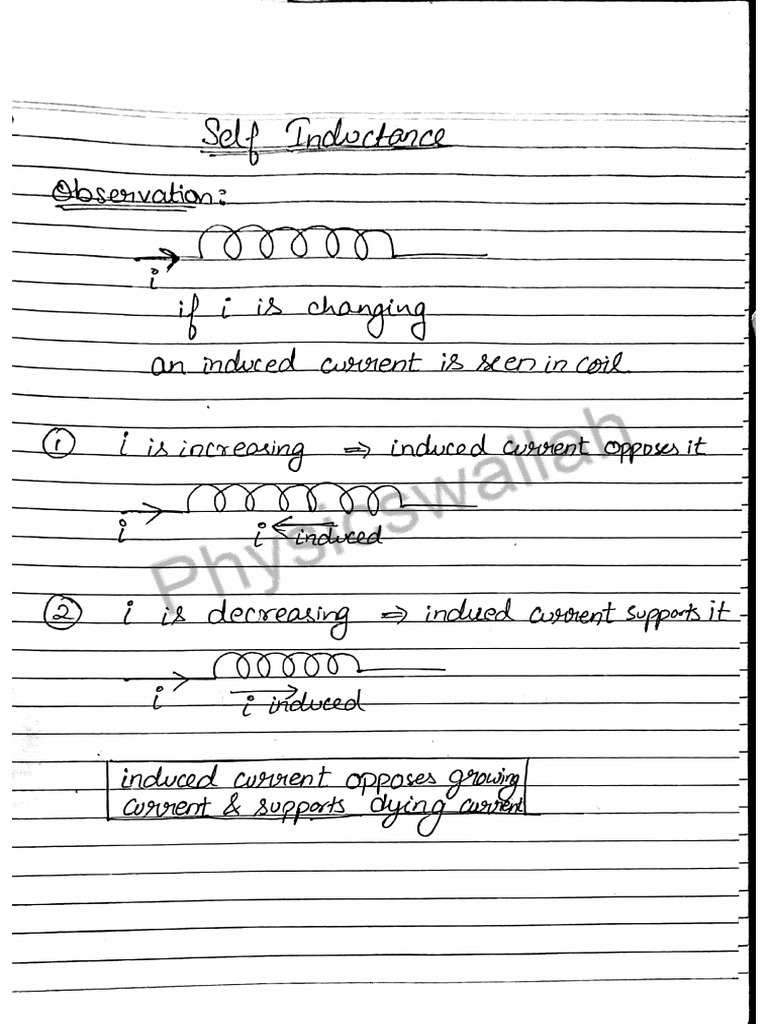 Self Inductance
Observation:
i
if i is changing
an induced current is seen in coil
① i is increasing ⇒ induced current opposes it
i
i induced
Physicswallah
② i is decreasing ⇒ indued current supports it
i
i induced
induced current opposes growing
current & supports dying current